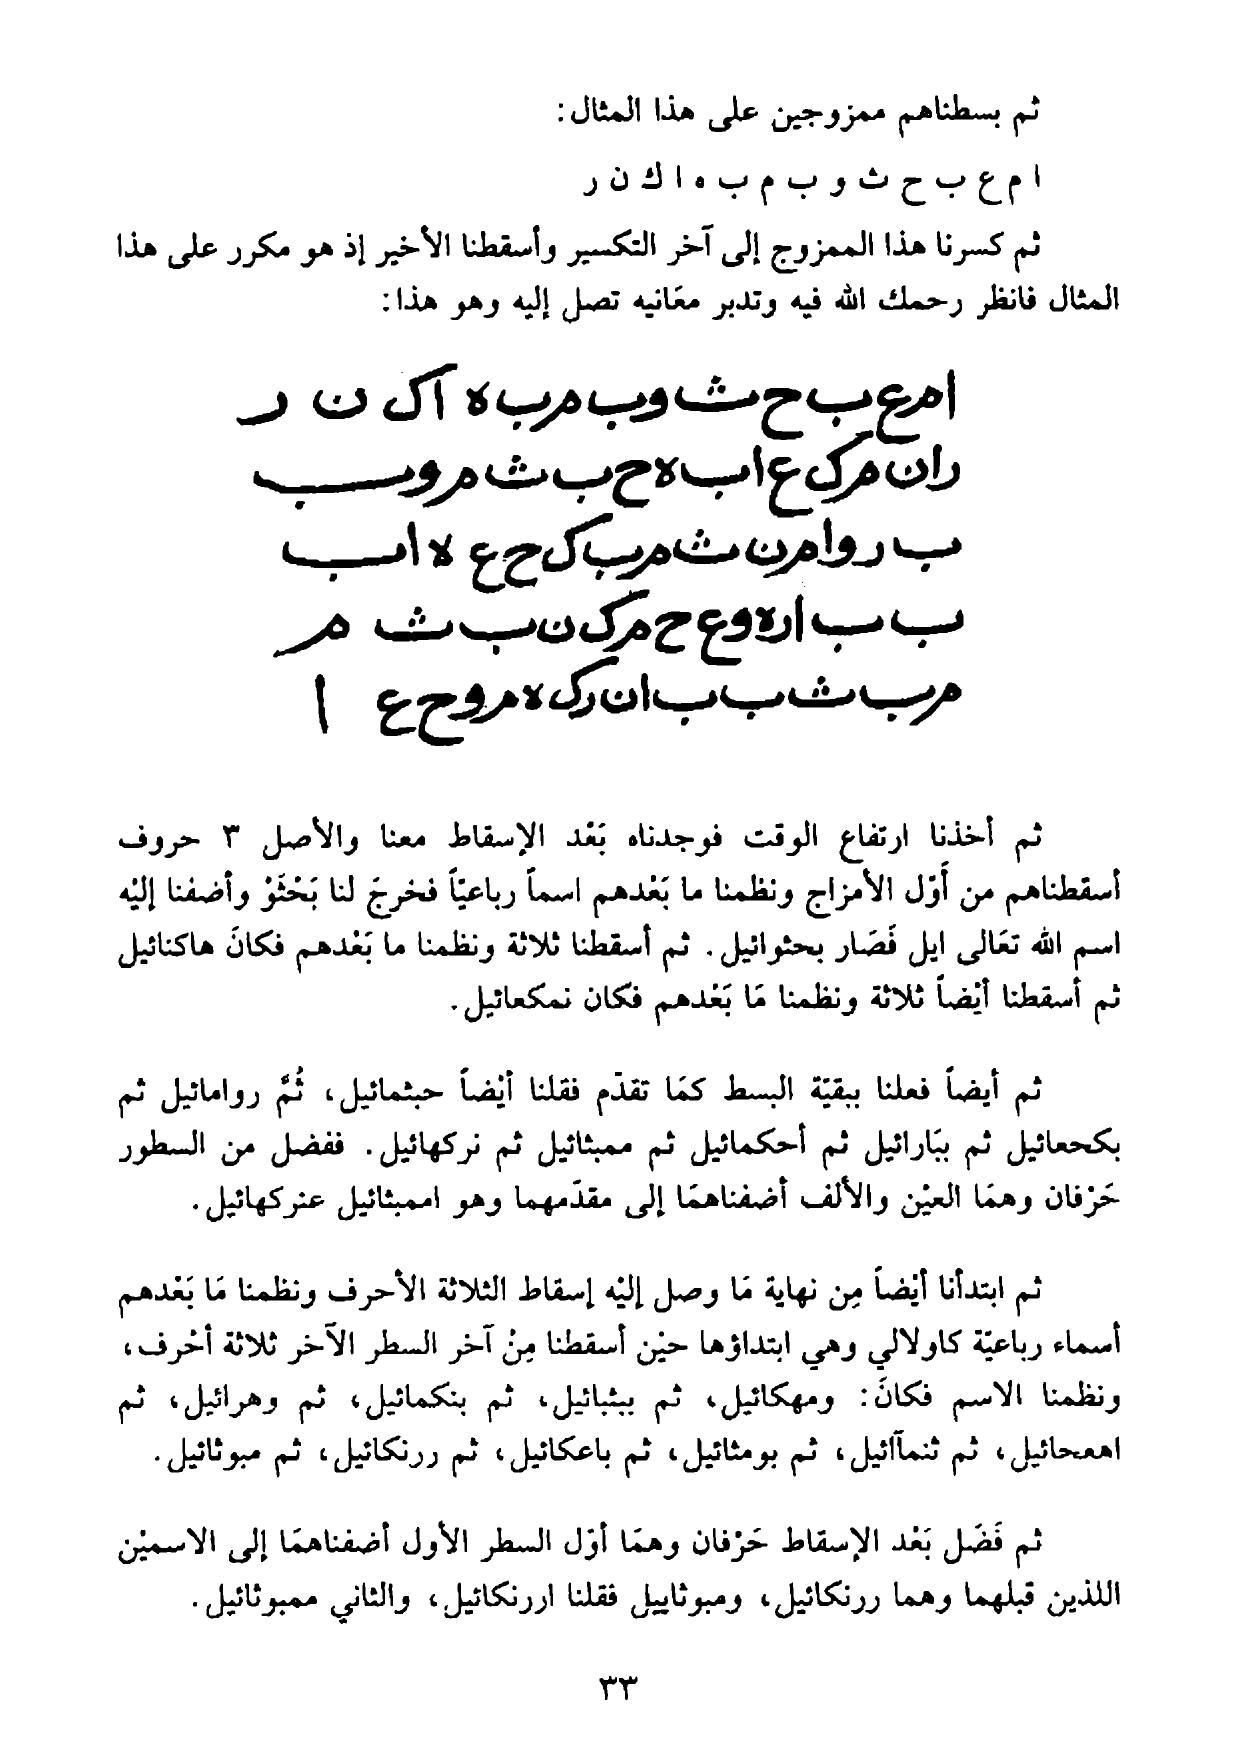 ثم بسطناهم ممزوجين على هذا المثال:
ا م ع ب ح ث و ب م ب ه ا ك ن ر
ثم كسرنا هذا الممزوج إلى آخر التكسير وأسقطنا الأخير إذ هو مكرر على هذا
المثال فانظر رحمك الله فيه وتدبر معَانيه تصل إليه وهو هذا:
ا م ع ب ح ث و ب م ب ه ا ك ن ر
ر ا ن م ك ع ا ب ه ح ب ث م و ب
ب ر و ا م ن ث م ب ك ح ع ه ا ب
ب ب ا ر ه و ع ح م ك ن ب ث م
م ب ث ب ب ا ن ر ك ه م و ح ع ا
ثم أخذنا ارتفاع الوقت فوجدناه بَعْد الإسقاط معنا والأصل ٣ حروف
أسقطناهم من أَوّل الأمزاج ونظمنا ما بَعْدهم اسماً رباعيّاً فخرجَ لنا بَحْثَوْ وأضفنا إليْه
اسم الله تعَالى ايل فَصَار بحثوائيل. ثم أسقطنا ثلاثة ونظمنا ما بَعْدهم فكانَ هاكنائيل
ثم أسقطنا أيْضاً ثلاثة ونظمنا مَا بَعْدهم فكان نمكعائيل.
ثم أيضاً فعلنا ببقيّة البسط كمَا تقدّم فقلنا أيْضاً حبثمائيل، ثُمَّ روامائيل ثم
بكحعائيل ثم ببَارائيل ثم أحكمائيل ثم ممبثائيل ثم نركهائيل. ففضل من السطور
حَرْفان وهمَا العيْن والألف أضفناهمَا إلى مقدّمهما وهو اممبثائيل عنركهائيل.
ثم ابتدأنا أيْضاً مِن نهاية مَا وصل إليْه إسقاط الثلاثة الأحرف ونظمنا مَا بَعْدهم
أسماء رباعيّة كاولالي وهي ابتداؤها حيْن أسقطنا مِنْ آخر السطر الآخر ثلاثة أحْرف،
ونظمنا الاسم فكانَ: ومهكائيل، ثم ببثبائيل، ثم بنكمائيل، ثم وهرائيل، ثم
اهعحائيل، ثم ثنمآائيل، ثم بومثائيل، ثم باعكائيل، ثم ررنكائيل، ثم مبوثائيل.
ثم فَضَل بَعْد الإسقاط حَرْفان وهمَا أوّل السطر الأول أضفناهمَا إلى الاسميْن
اللذين قبلهما وهما ررنكائيل، ومبوثاييل فقلنا اررنكائيل، والثاني ممبوثائيل.
٣٣